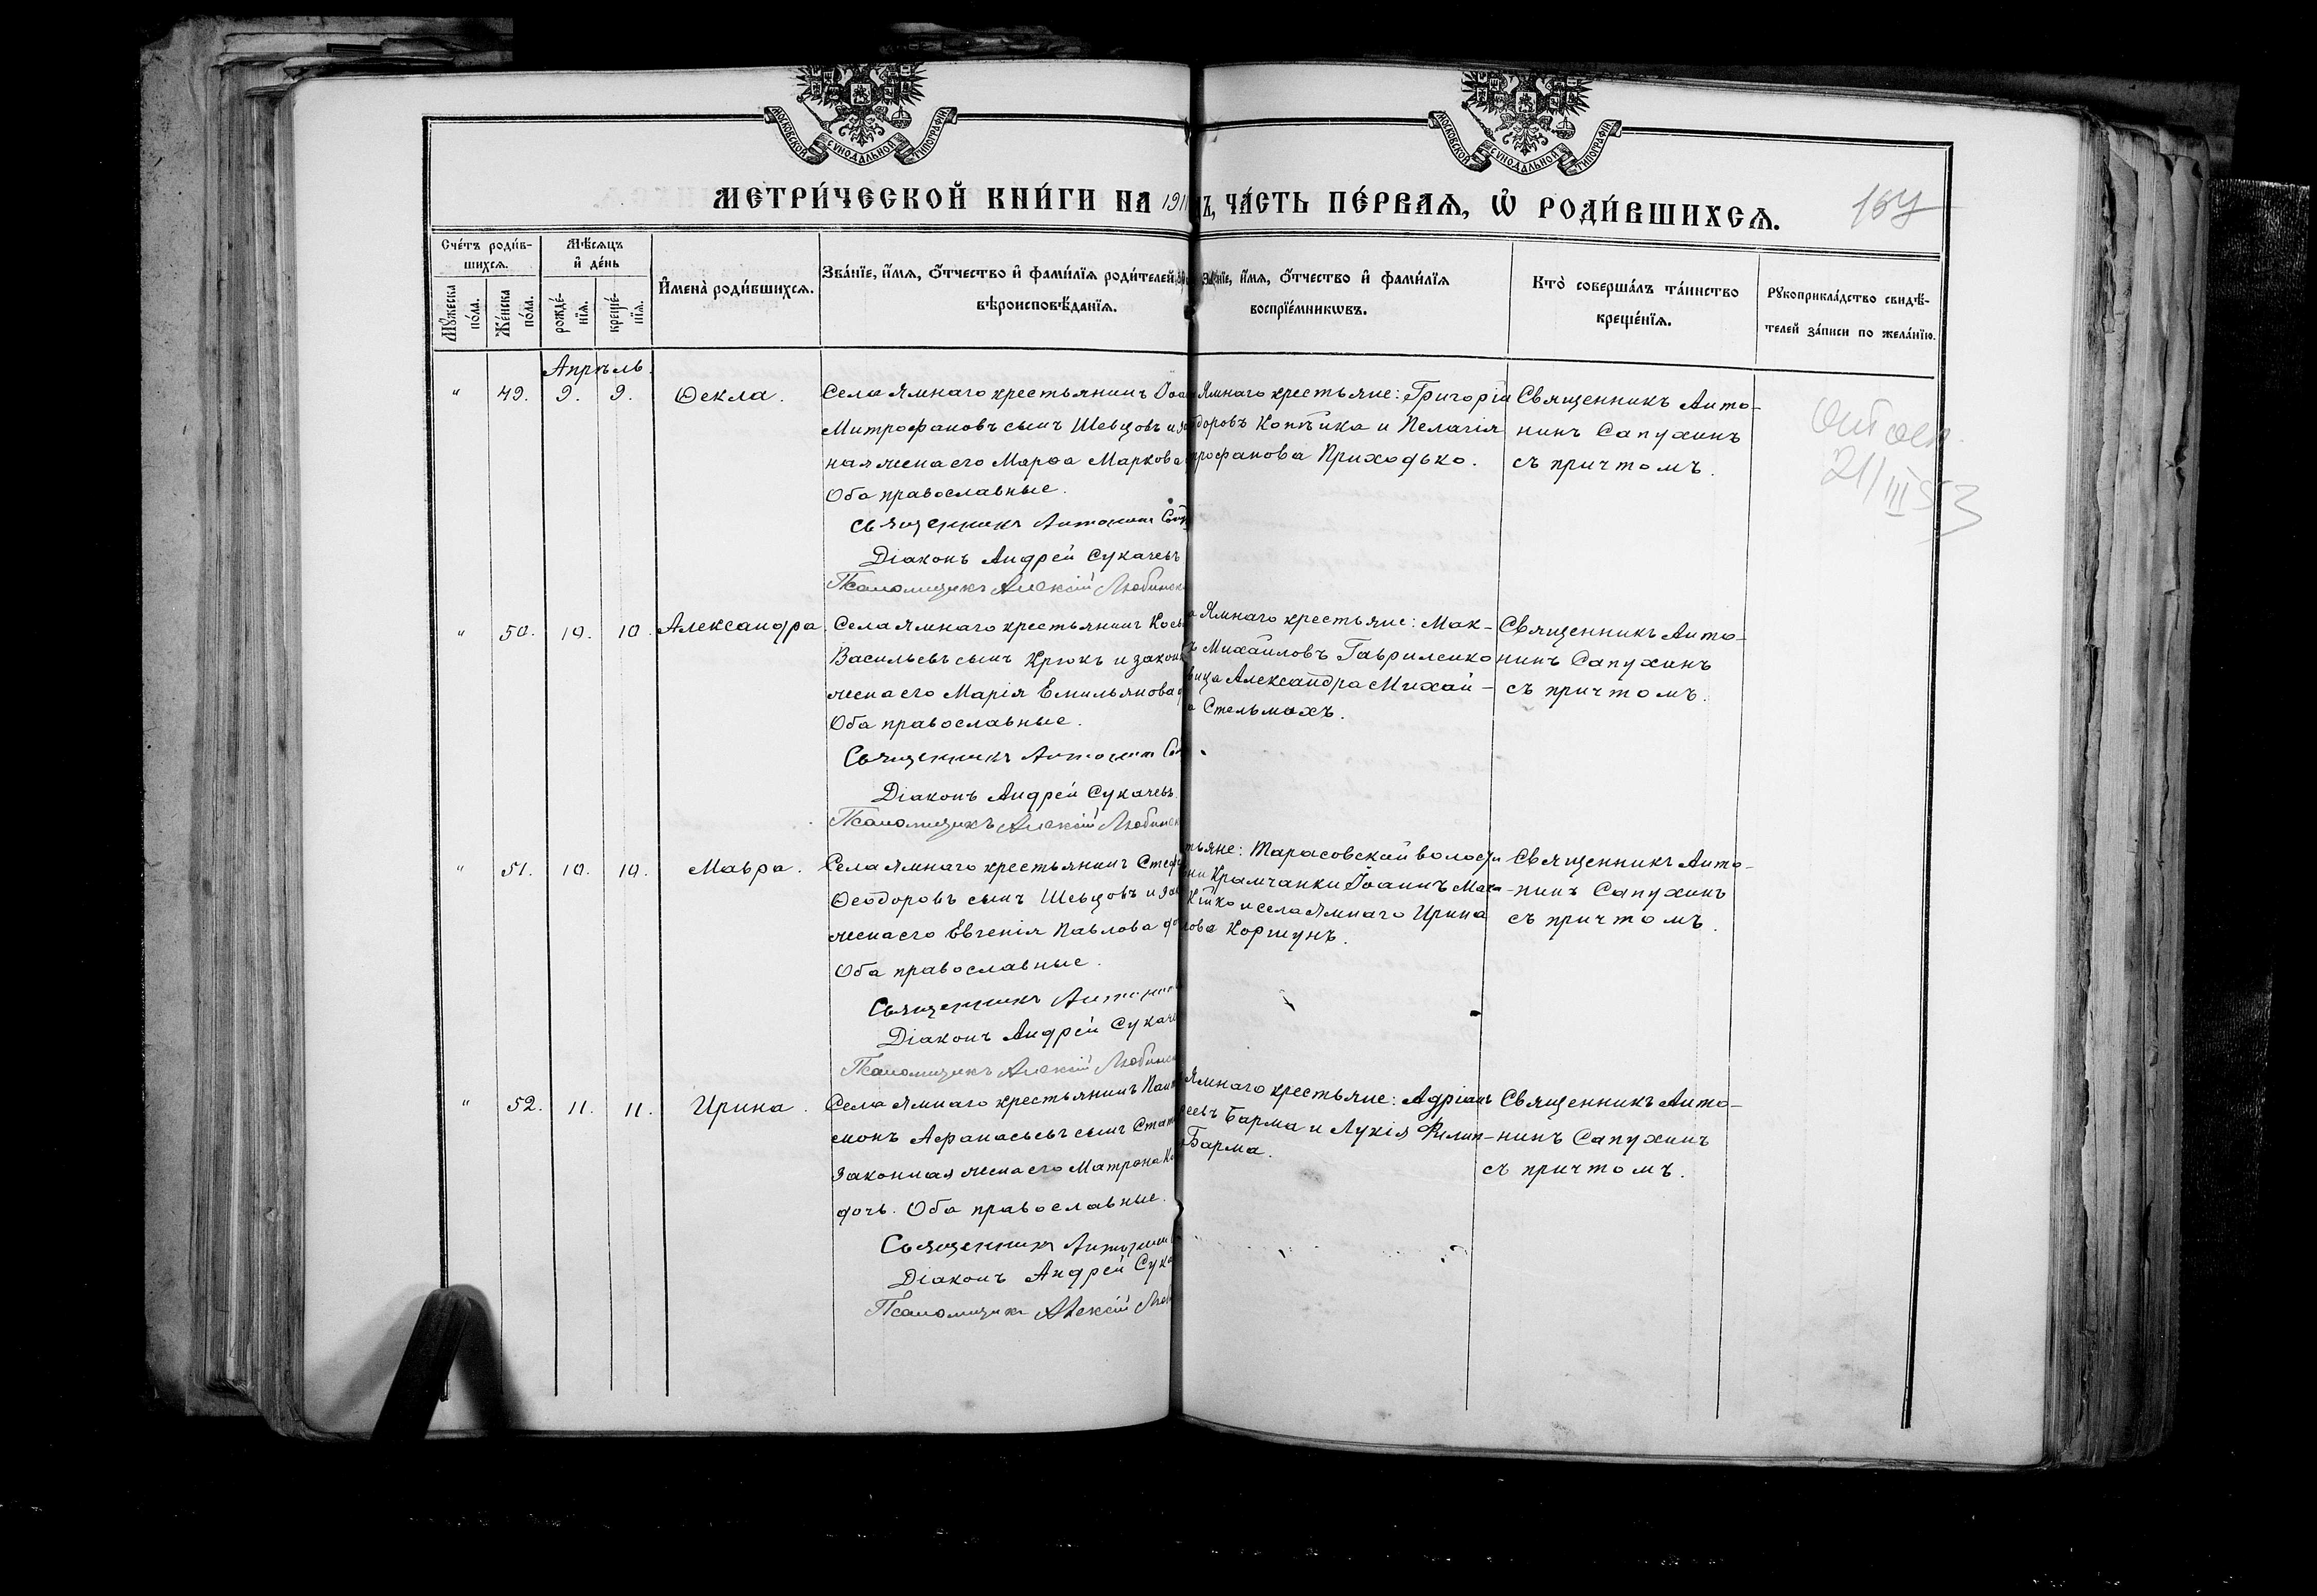 МОСКОВСКОЙ СУНОДАЛЬНОЙ ТИПОГРАФІИ
МОСКОВСКОЙ СУНОДАЛЬНОЙ ТИПОГРАФІИ
МЕТРИ́ЧЕСКОЙ КНИ́ГИ НА 191
Ъ, ЧА́СТЬ ПЕ́РВАЯ, Ѡ РОДИ́ВШИХСЯ.
Сче́тъ роди́в-
шихся.
Мѣ́сяцъ
и де́нь
Му́жеска по́ла.
Же́нска по́ла.
рожде́-
нїя.
креще́-
нїя.
И҆мена̀ роди́вшихся.
Зва́нїе, и҆́мя, ѻ҆́тчество и҆ фами́лїя роди́телей,
вѣроисповѣ́данїя.
и҆́мя, ѻ҆́тчество и҆ фами́лїя
воспрїе́мниковъ.
Кто̀ соверша́лъ та́инство
креще́нїя.
Рукоприкла́дство свидѣ́-
телей за́писи по жела́нїю.
Апрѣль.
" 49. 9. 9. Ѳекла.
Села Ямнаго крестьянинъ
Митрофановъ сынъ Шевцовъ и
ная жена его Марѳа Маркова
Оба православные.
Священникъ Антонинъ
Діаконъ Андрей Сукачевъ
Псаломщикъ Алексій
Ямнаго крестьяне: Григорій
доровъ Копѣйка и Пелагія
трофанова Приходько.
Священникъ Анто-
нинъ Сапухинъ
съ причтомъ.
21/III 53
" 50. 10. 10. Александра.
Села Ямнаго крестьянинъ
Васильевъ сынъ Крюкъ и закон
жена его Марія Емильянова
Оба православные.
Священникъ Антонинъ
Діаконъ Андрей Сукачевъ.
Псаломщикъ Алексій
Ямнаго крестьяне: Мак-
ъ Михаиловъ Гавриленко
вица Александра Михай-
а Стельмахъ.
Священникъ Анто-
нинъ Сапухинъ
съ причтомъ.
" 51. 10. 10. Мавра.
Села Ямнаго крестьянинъ
Ѳеодоровъ сынъ Шевцовъ и
жена его Евгенія Павлова
Оба православные.
Священникъ
Діаконъ Андрей
Псаломщикъ Алексій
тьяне: Тарасовской волости
Крамчанки Іоаннъ
и села Ямнаго Ирина
лова Коршунъ.
Священникъ Анто-
нинъ Сапухинъ
съ причтомъ.
" 52. 11. 11. Ирина.
Села Ямнаго крестьянинъ
Аѳанасьевъ сынъ
законная жена его Матрона
дочь. Оба православные.
Священникъ Антонинъ
Діаконъ Андрей
Псаломщикъ Алексій
Ямнаго крестьяне: Адріанъ
еевъ Барма и Лукія Филип-
Барма.
Священникъ Анто-
нинъ Сапухинъ
съ причтомъ.